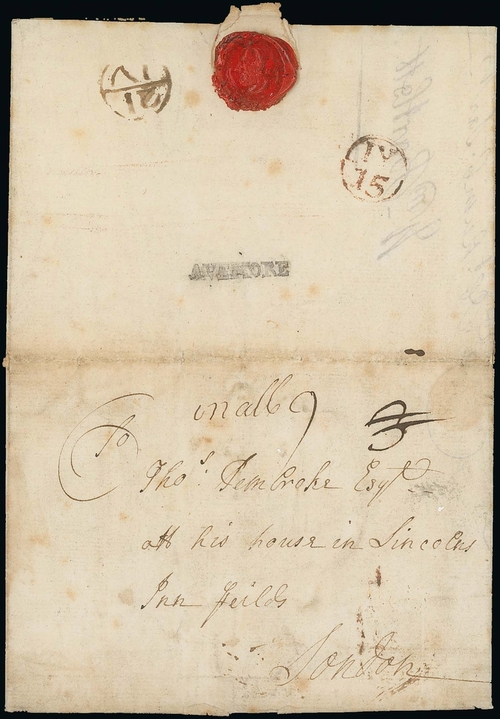 IV
21
IV
15
AVEMORE
in all 9
To
Tho.s Pembroke Esq.r
att his house in Lincolns
Inn feilds
London